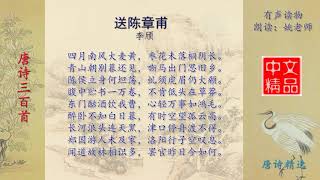 送陈章甫
李颀
四月南风大麦黄，枣花未落桐阴长。
青山朝别暮还见，嘶马出门思旧乡。
陈侯立身何坦荡，虬须虎眉仍大颡。
腹中贮书一万卷，不肯低头在草莽。
东门酤酒饮我曹，心轻万事如鸿毛。
醉卧不知白日暮，有时空望孤云高。
长河浪头连天黑，津口停舟渡不得。
郑国游人未及家，洛阳行子空叹息。
闻道故林相识多，罢官昨日今如何。
唐诗三百首
有声读物
朗读：姚老师
中文
精品
唐诗精选